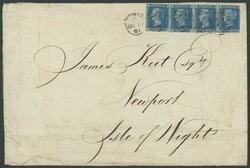 James Keet Esqre
Newport
Isle of Wight